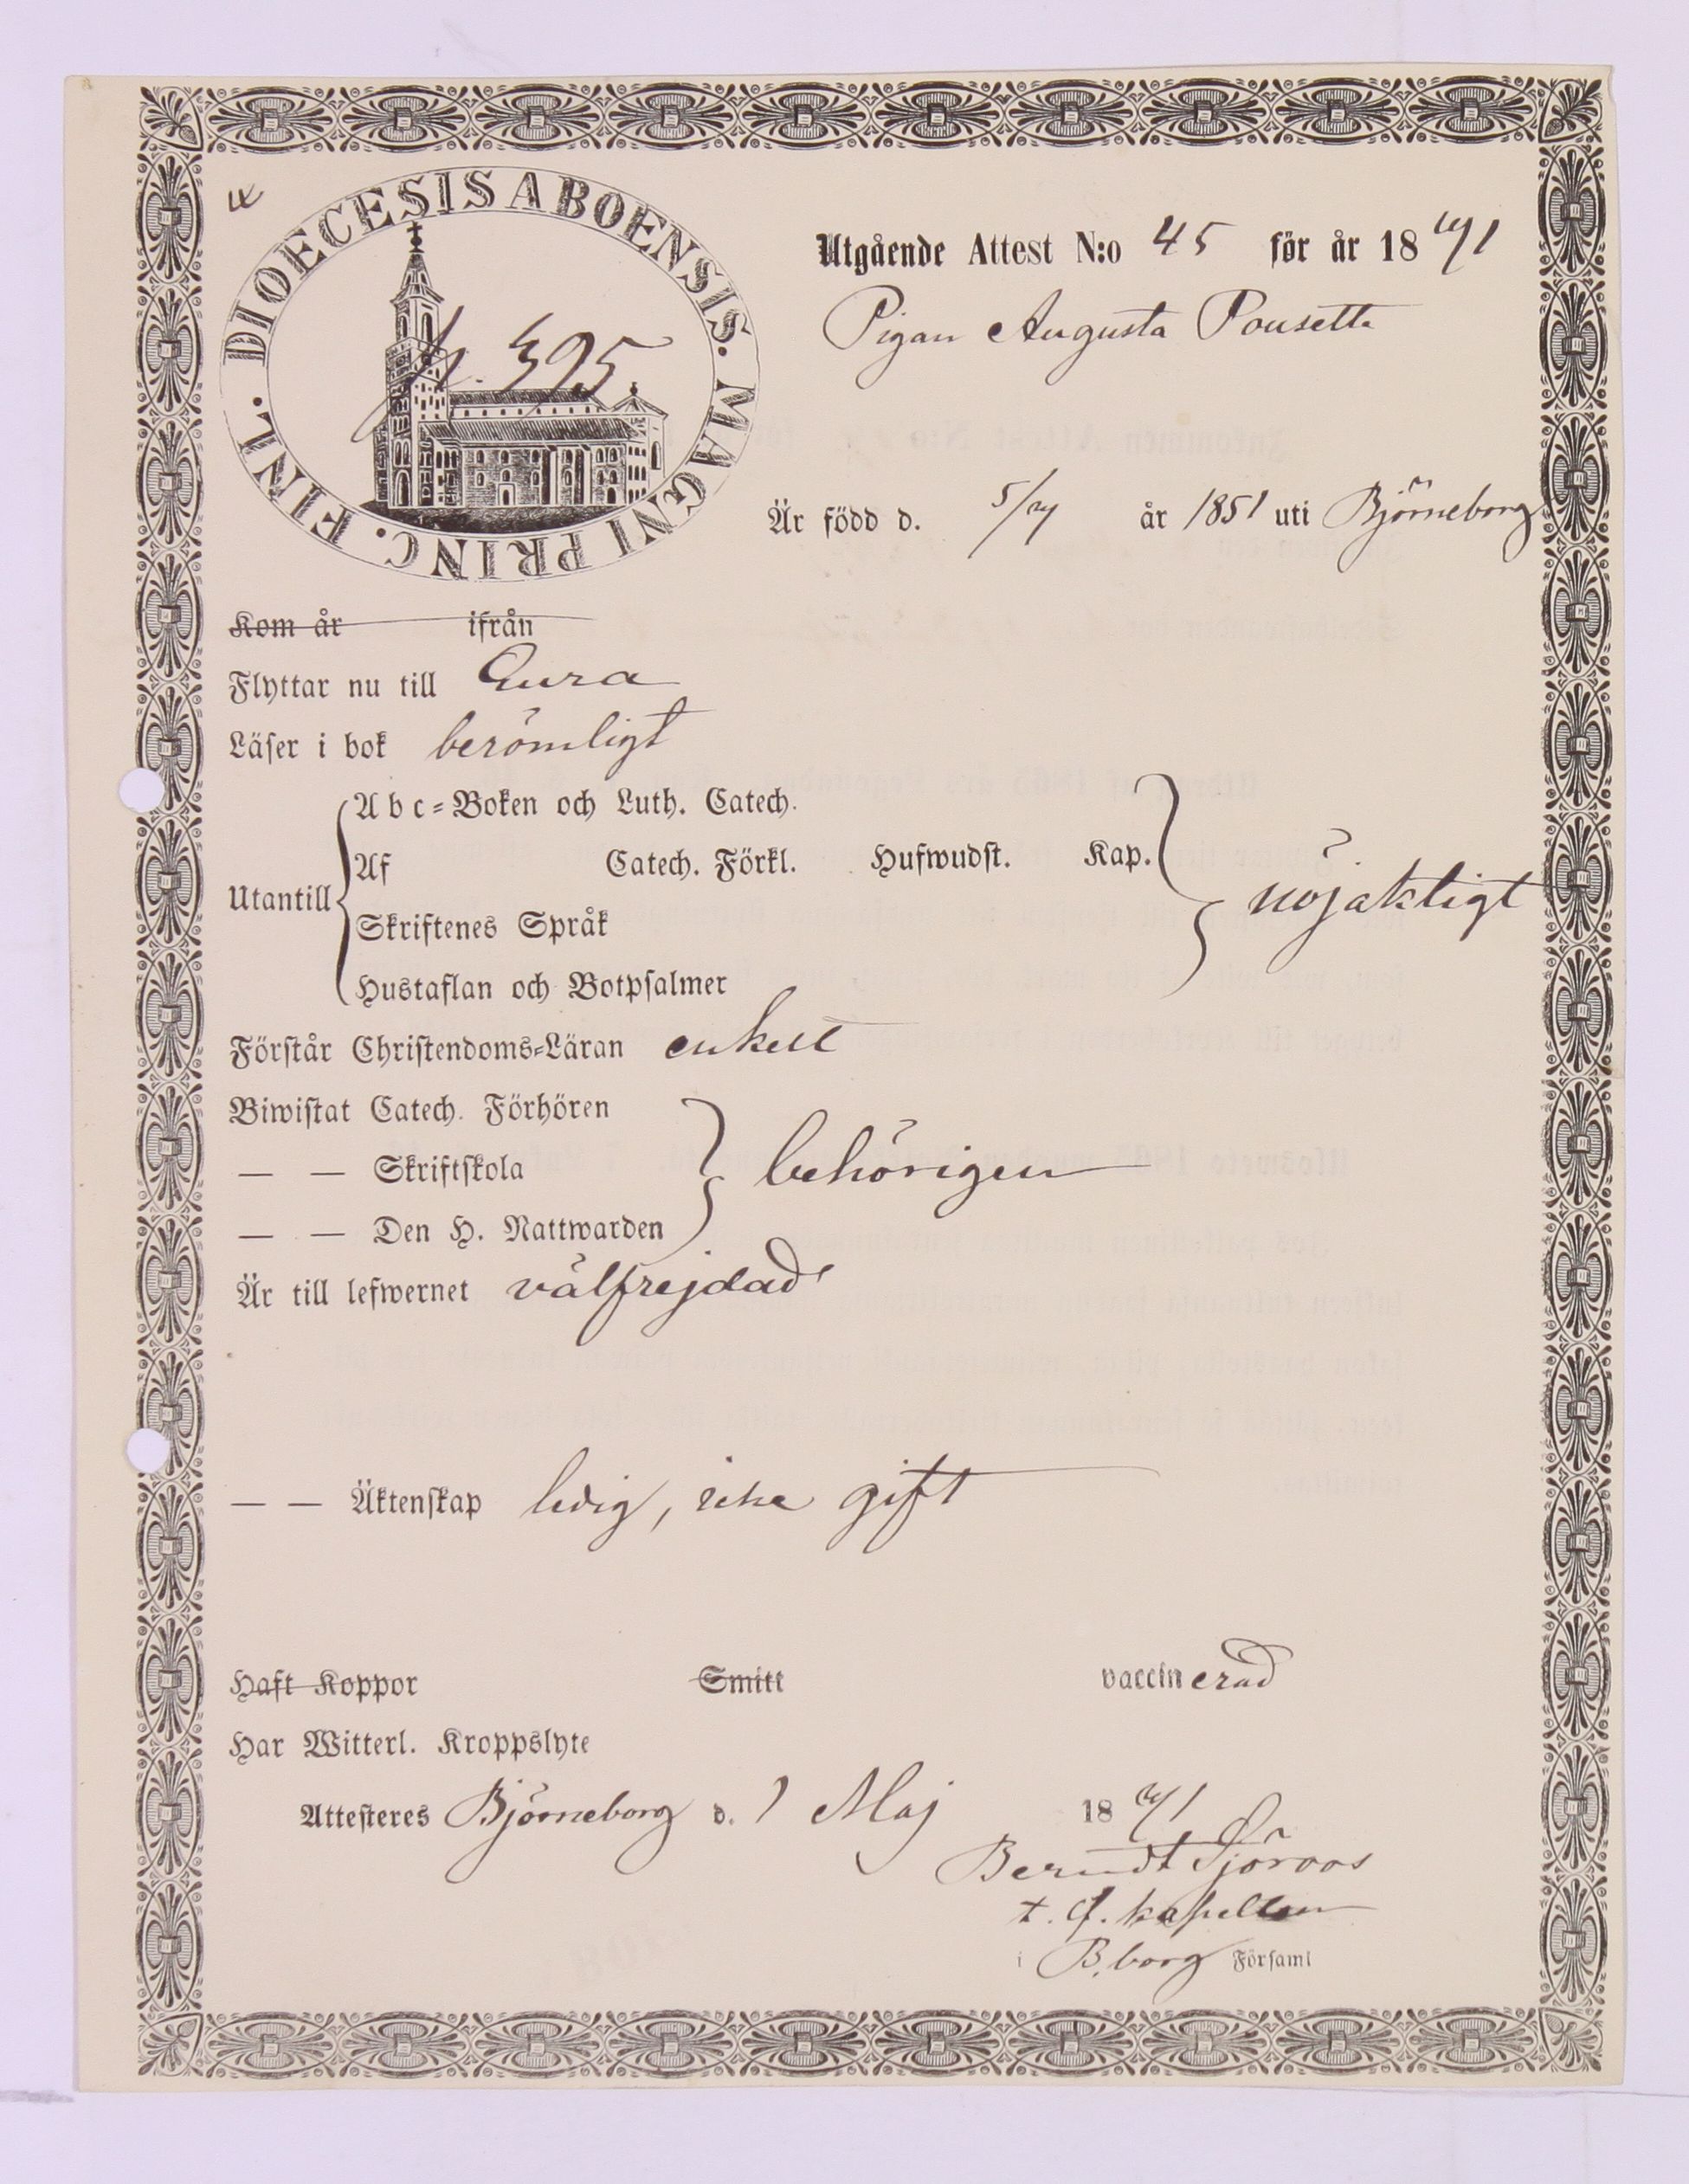 DIOECESIS ABOENSIS. MAGNI PRINC. FINL.
p. 395
Utgående Attest N:o 45 för år 1871
Pigan Augusta Pousette
Är född d. 5/7 år 1851 uti Björneborg
Kom år ifrån
Flyttar nu till Eura
Läser i bok berömligt
Utantill
A b c-Boken och Luth. Catech.
Af Catech. Förkl. Hufwudst. Kap.
Skriftenes Språk
Hustaflan och Botpsalmer
nöjaktigt
Förstår Christendoms-Läran enkelt
Biwistat Catech. Förhören
— — Skriftskola
— — Den H. Nattwarden
behörigen
Är till lefwernet välfrejdad
— — Äktenskap ledig, icke gift
Haft Koppor Smitt vaccinerad
Har Witterl. Kroppslyte
Attesteres Björneborg d. 1 Maj 1871
Berndt Sjöroos
t. f. kapellan
i B.borg Församl